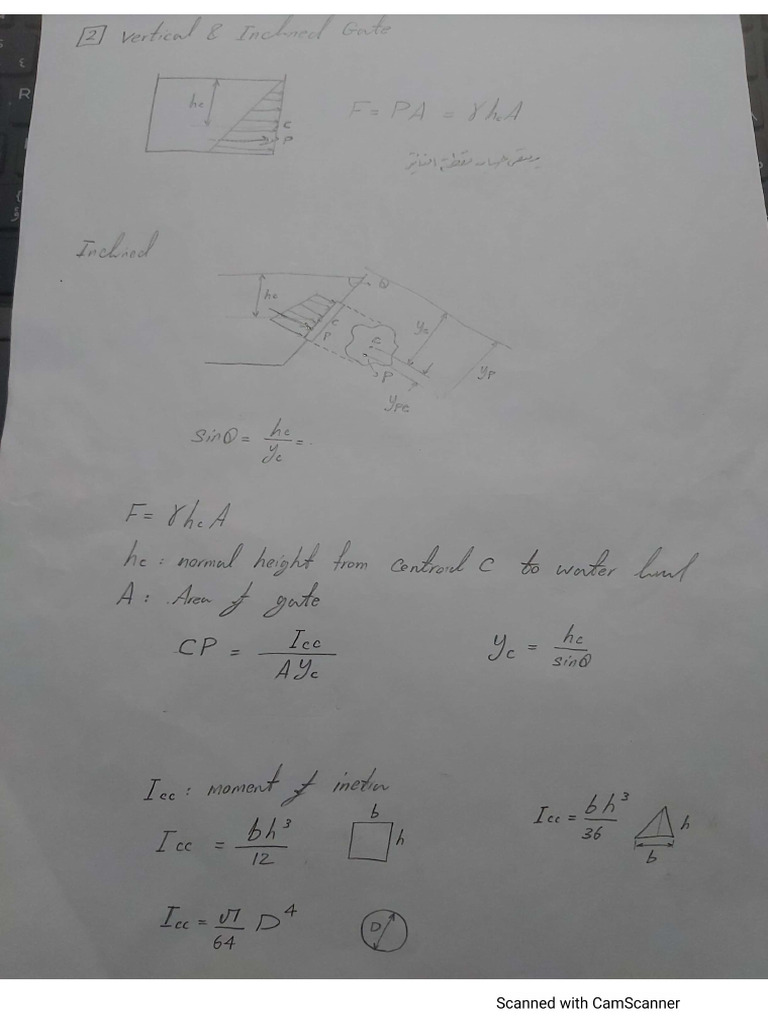 2 Vertical & Inclined Gate
hc
C
P
F = PA = γhcA
Inclined
hc
θ
C
P
C
P
yc
yP
yPC
sinθ = hc/yc = .
F = γhcA
hc : normal height from Centroid C to water level
A : Area of gate
CP = Icc / A yc
yc = hc / sinθ
Icc : moment of inetia
Icc = bh³/12
b
h
Icc = bh³/36
h
b
Icc = π/64 D⁴
D
Scanned with CamScanner